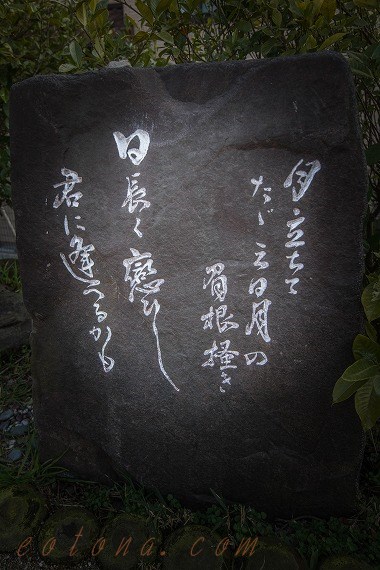 月立ちて
たゞ三日月の
眉根掻き
日長く戀ひし
君に逢へるかも
eotona.com